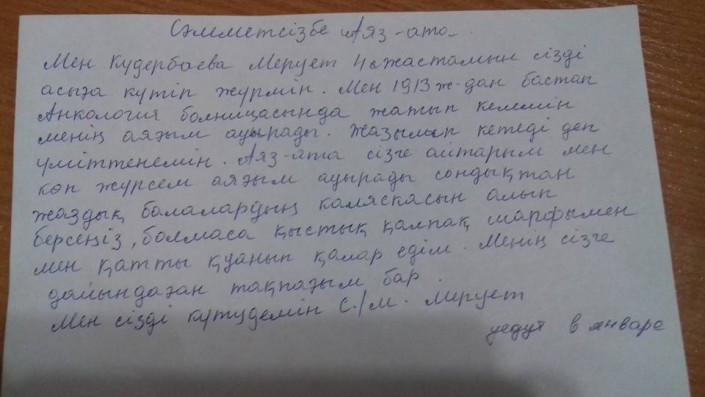 Сәлеметсізбе Аяз-ата.
Мен Кудербаева Мерует 4жастамын сізді
асыға күтіп жүрмін. Мен 1913ж-дан бастап
Анкология болницасында жатып келемін
менің аяғым ауырады. Жазылып кетеді деп
үміттенемін. Аяз-ата сізге айтарым мен
көп жүрсем аяғым ауырады сондықтан
жаздық балалардың каляскасын алып
берсеңіз, болмаса қыстық қалпақ шарфымен
мен қатты қуанып қалар едім. Менің сізге
дайындаған тақпағым бар.
Мен сізді күтудемін С./м. Мерует
уедут в январе